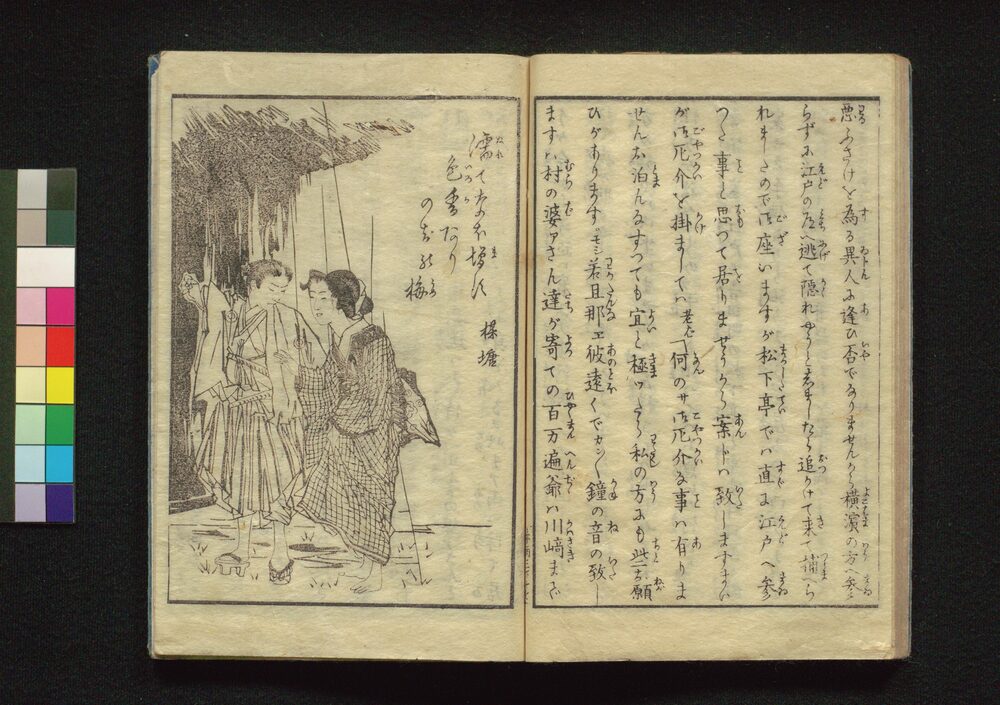 悪ふざけを為る異人に逢ひ否でなりませんから横濱の方へ参
らずに江戸の方へ逃て隠れやうと者ましたら追かけて来て捕へら
れましたので御座いますが松下亭では直に江戸へ参
つた事と思つて居りませうから案じは致しますまい
が御厄介を掛ましては老レ「何のサ御厄介な事は有りま
せんお泊んなすつても宜と極ツたら私の方にも些お願
ひがあります。モシ若旦那ヱ彼遠くでカン〳〵鐘の音の致し
ますハ村の婆アさん達が寄ての百万遍爺ハ川崎まで
濡て
色香あり
のぢの梅
楳塘